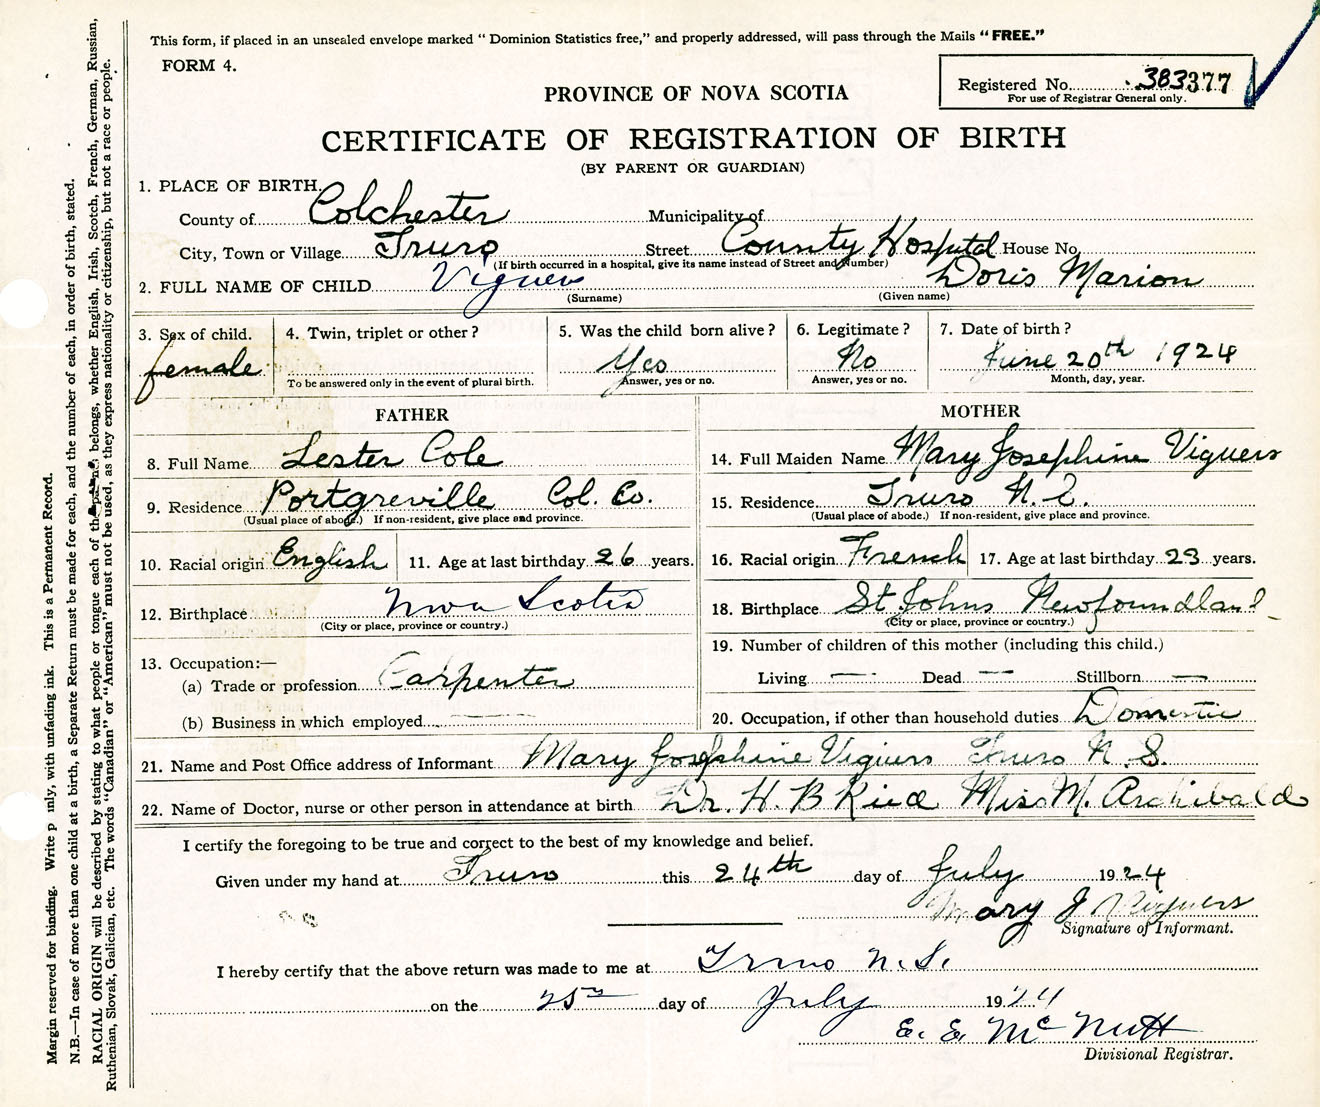 This form, if placed in an unsealed envelope marked "Dominion Statistics free," and properly addressed, will pass through the Mails "FREE."
FORM 4.
Registered No. 383377
For use of Registrar General only.
PROVINCE OF NOVA SCOTIA
CERTIFICATE OF REGISTRATION OF BIRTH
(BY PARENT OR GUARDIAN)
1. PLACE OF BIRTH.
County of Colchester Municipality of
City, Town or Village Truro Street County Hospital House No.
(If birth occurred in a hospital, give its name instead of Street and Number)
2. FULL NAME OF CHILD Viguers Doris Marion
(Surname) (Given name)
3. Sex of child. 4. Twin, triplet or other? 5. Was the child born alive? 6. Legitimate? 7. Date of birth?
female Yes No June 20th 1924
To be answered only in the event of plural birth. Answer, yes or no. Answer, yes or no. Month, day, year.
FATHER
8. Full Name Lester Cole
9. Residence Portgreville Col. Co.
(Usual place of abode.) If non-resident, give place and province.
10. Racial origin English 11. Age at last birthday 26 years.
12. Birthplace Nova Scotia
(City or place, province or country.)
13. Occupation:—
(a) Trade or profession Carpenter
(b) Business in which employed —
MOTHER
14. Full Maiden Name Mary Josephine Viguers
15. Residence Truro N.S.
(Usual place of abode.) If non-resident, give place and province.
16. Racial origin French 17. Age at last birthday 23 years.
18. Birthplace St Johns Newfoundland
(City or place, province or country.)
19. Number of children of this mother (including this child.)
Living — Dead — Stillborn —
20. Occupation, if other than household duties Domestic
21. Name and Post Office address of Informant Mary Josephine Viguers Truro N.S.
22. Name of Doctor, nurse or other person in attendance at birth Dr. H. B Ried Miss M. Archibald
I certify the foregoing to be true and correct to the best of my knowledge and belief.
Given under my hand at Truro this 24th day of July 1924
Mary J Viguers
Signature of Informant.
I hereby certify that the above return was made to me at Truro N.S.
on the 25th day of July 1924
E. E. McNutt
Divisional Registrar.
Margin reserved for binding. Write plainly, with unfading ink. This is a Permanent Record.
N.B.—In case of more than one child at a birth, a Separate Return must be made for each, and the number of each, in order of birth, stated.
RACIAL ORIGIN will be described by stating to what people or tongue each of the parents belongs, whether English, Irish, Scotch, French, German, Russian,
Ruthenian, Slovak, Galician, etc. The words "Canadian" or "American" must not be used, as they express nationality or citizenship, but not a race or people.